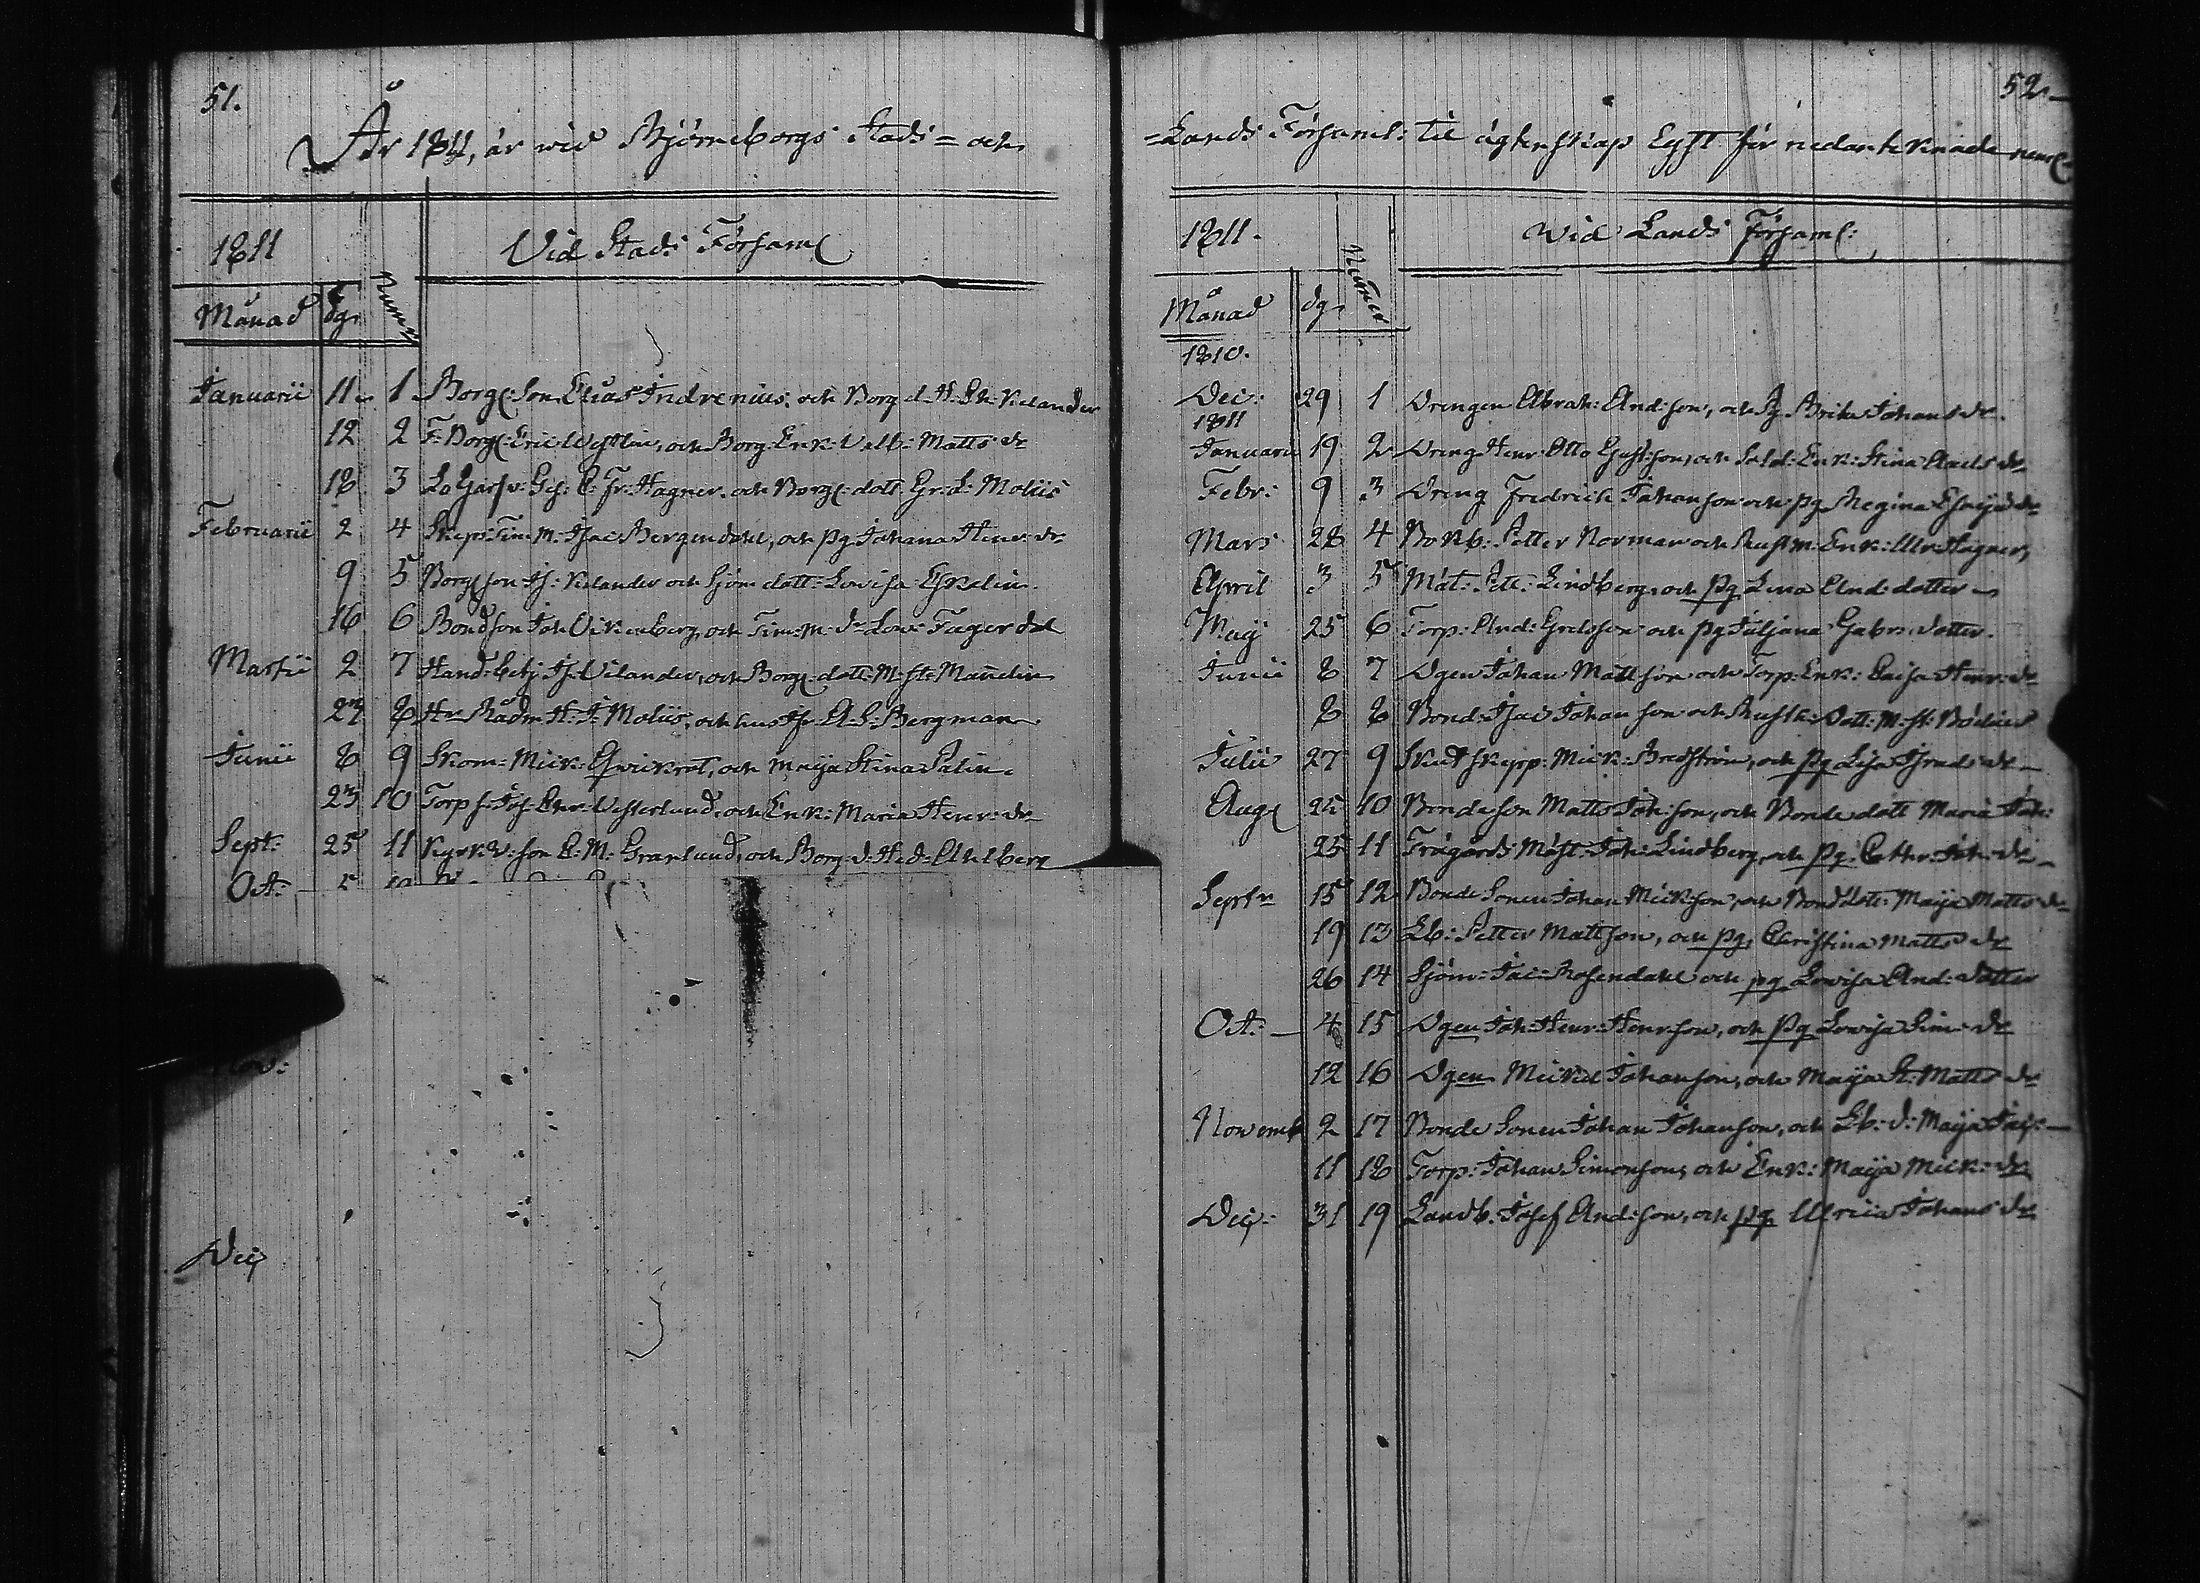 51.
År 1811, är wid Björneborgs Stads= och
1811
Vid Stads Församl
Månad dg Numer
Januarii 11 1 Borgl: Son Elias Indrenius, och Borg d H: Kielander
12 2 F: Borgl: Eric Westlin, och Borg: Enk: Valb: Matts dr
18 3 Fr: Hagner. och Borgl: dott. Gr: L: Moliis
Februarii 2 4 Skeps Tim: M: Isac Bergendahl, och pg Johana Henr: dr
9 5 Borgl son Is: Kielander och Sjöm dott: Lovisa
16 6 Bondson Joh: och Tim: m: dr Lov: Fagerdal
Martii 2 7 Hand: Betj Is: Vilander, och Borgl. dott: M: St: Mañelin
27 8 Hr Rådm H: J: Moliis, och A: S: Bergman
Junii 8 9 Skom: Mick: och Maija Stina Palin
23 10 Torp s: Jos: Vesterlund, och Enk: Maria Henr: dr
Sept: 25 11 Kyrk: v: son C: M: Granlund, och Borg: d: Hed:
Oct: 5
Nov:
Dec
52.
=Lands Församl: til ägtenskap Lyst för nedanteknade neml
1811.
Wid Lands Församl:
Månad dg Numer
1810.
Dec: 29 1 Drengen Abrah: And: son, och Pg Brita Johans dr.
1811
Januarii 19 2 Dreng Henr: Otto Gust: son, och Sold: Enk: Stina Carls dr
Febr: 9 3 Dreng Fredrich Johanson och pg Regina Esaije dr
Mars 28 4 Petter Norman och Rustm: Enk: Ulr: Hagner,
April 3 5 Mat: Pett: Lindberg, och pg Lena And: dotter
Maij 25 6 Torp: And: Grelsson och pg Juljana Gabr: dotter.
Junii 8 7 Dgen Johan Mattson och Torp: Enk: Caisa Henr: dr
8 8 Bond: Isac Johanson och Rusth: Dott: M: St:
Julii 27 9 Skutskepp: Mick: Bredström, och pg Lisa Isracs dr
Aug 25 10 Bondeson Matts Joh:son, och Bonde dott Maria Joh:
25 11 Trägårds Mäst: Joh: Lindberg, och pg: Cathr: Joh: dr
Septr 15 12 Bonde Sonen Johan Mickson, och Bond dott: Maija Matts dr
19 13 Lb: Petter Mattson, och pg, Christina Matts dr
26 14 Sjöm: Jac: Rosendahl och pg Lovisa And: dotter
Oct: 4 15 Dgen Joh: Henr: Henrson, och Pg Lovisa Sim: dr
12 16 Dgen Mickel Johanson, och Maija St: Matts dr
Novemb 2 17 Bonde Sonen Johan Johanson, och Lb: d: Maija Jac:
11 18 Torp: Johan Simonson, och Enk: Maija Mick: dr
Dec: 31 19 Landb: Josef And:son, och pg Ulrica Johans dr